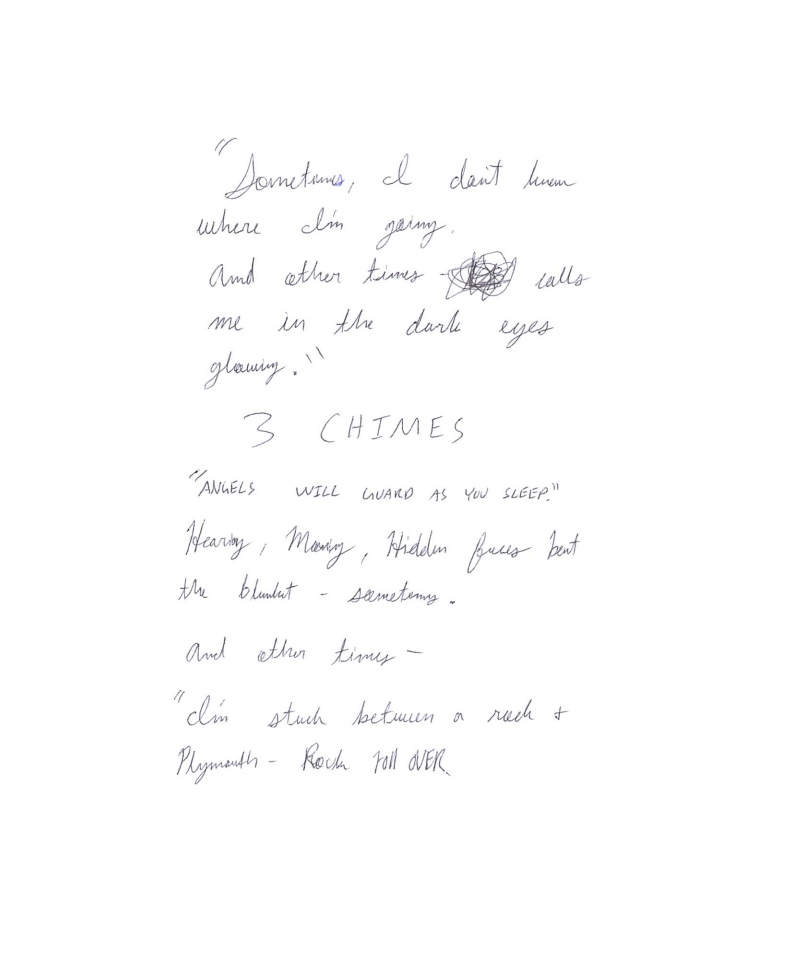 "Sometimes, I don't know
where I'm going.
And other times - calls
me in the dark eyes
glowing."
3 CHIMES
"ANGELS WILL GUARD AS YOU SLEEP."
Hearing, Moving, Hidden faces
the blanket - sometimes.
And other times -
"I'm stuck between a rock +
Plymouth - Rock roll OVER.